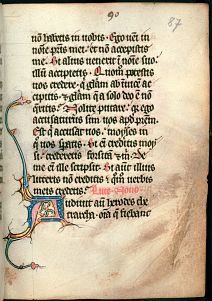 90
87
nō habetis in uobis. Ego ueni in
noīe pr̄is mei. et nō accepistis
me. Si alius uenerit ī noīe suo.
illū accipietis. Quom̄ potestis
uos credere. qui glām ab īuicē ac
cipitis. et glām q̄ a solo deo ē nō
q̄ritis? Nolite putare. quia ego
accusaturus sim uos apud prēm.
Est qui accusat uos. moyses in
quo uos speratis. Si enī crederetis moy
si. crederetis forsitā et m̄. De
me enī ille scripsit. Si autē illius
litteris nō creditis. quō uerbis
meis credetis?
Audiuit autē herodes te
trarcha. oīa que fiebant